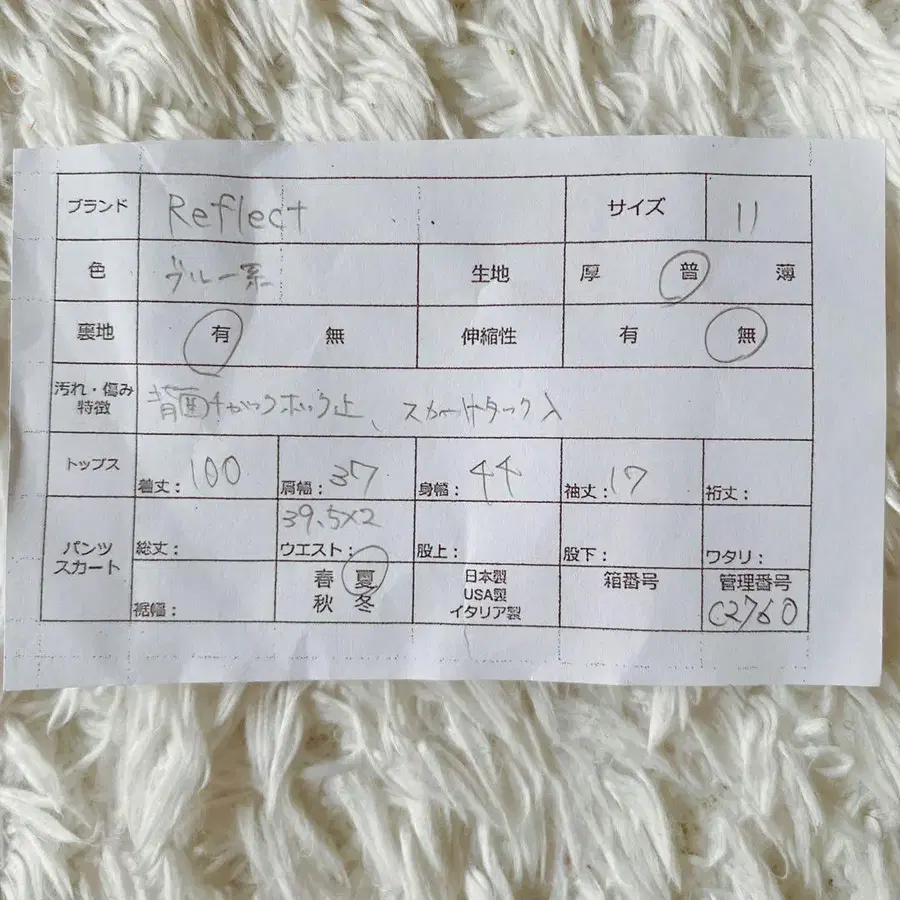 ブランド Reflect サイズ 11
色 ブルー系 生地 厚 普 薄
裏地 有 無 伸縮性 有 無
汚れ・傷み
特徴 背面チャックホック止、スカートタック入
トップス 着丈: 100 肩幅: 37 身幅: 44 袖丈: 17 裄丈:
パンツ
スカート 総丈: 39.5×2 ウエスト: 股上: 股下: ワタリ:
裾幅: 春 夏
秋 冬
日本製
USA製
イタリア製
箱番号
管理番号
C2760